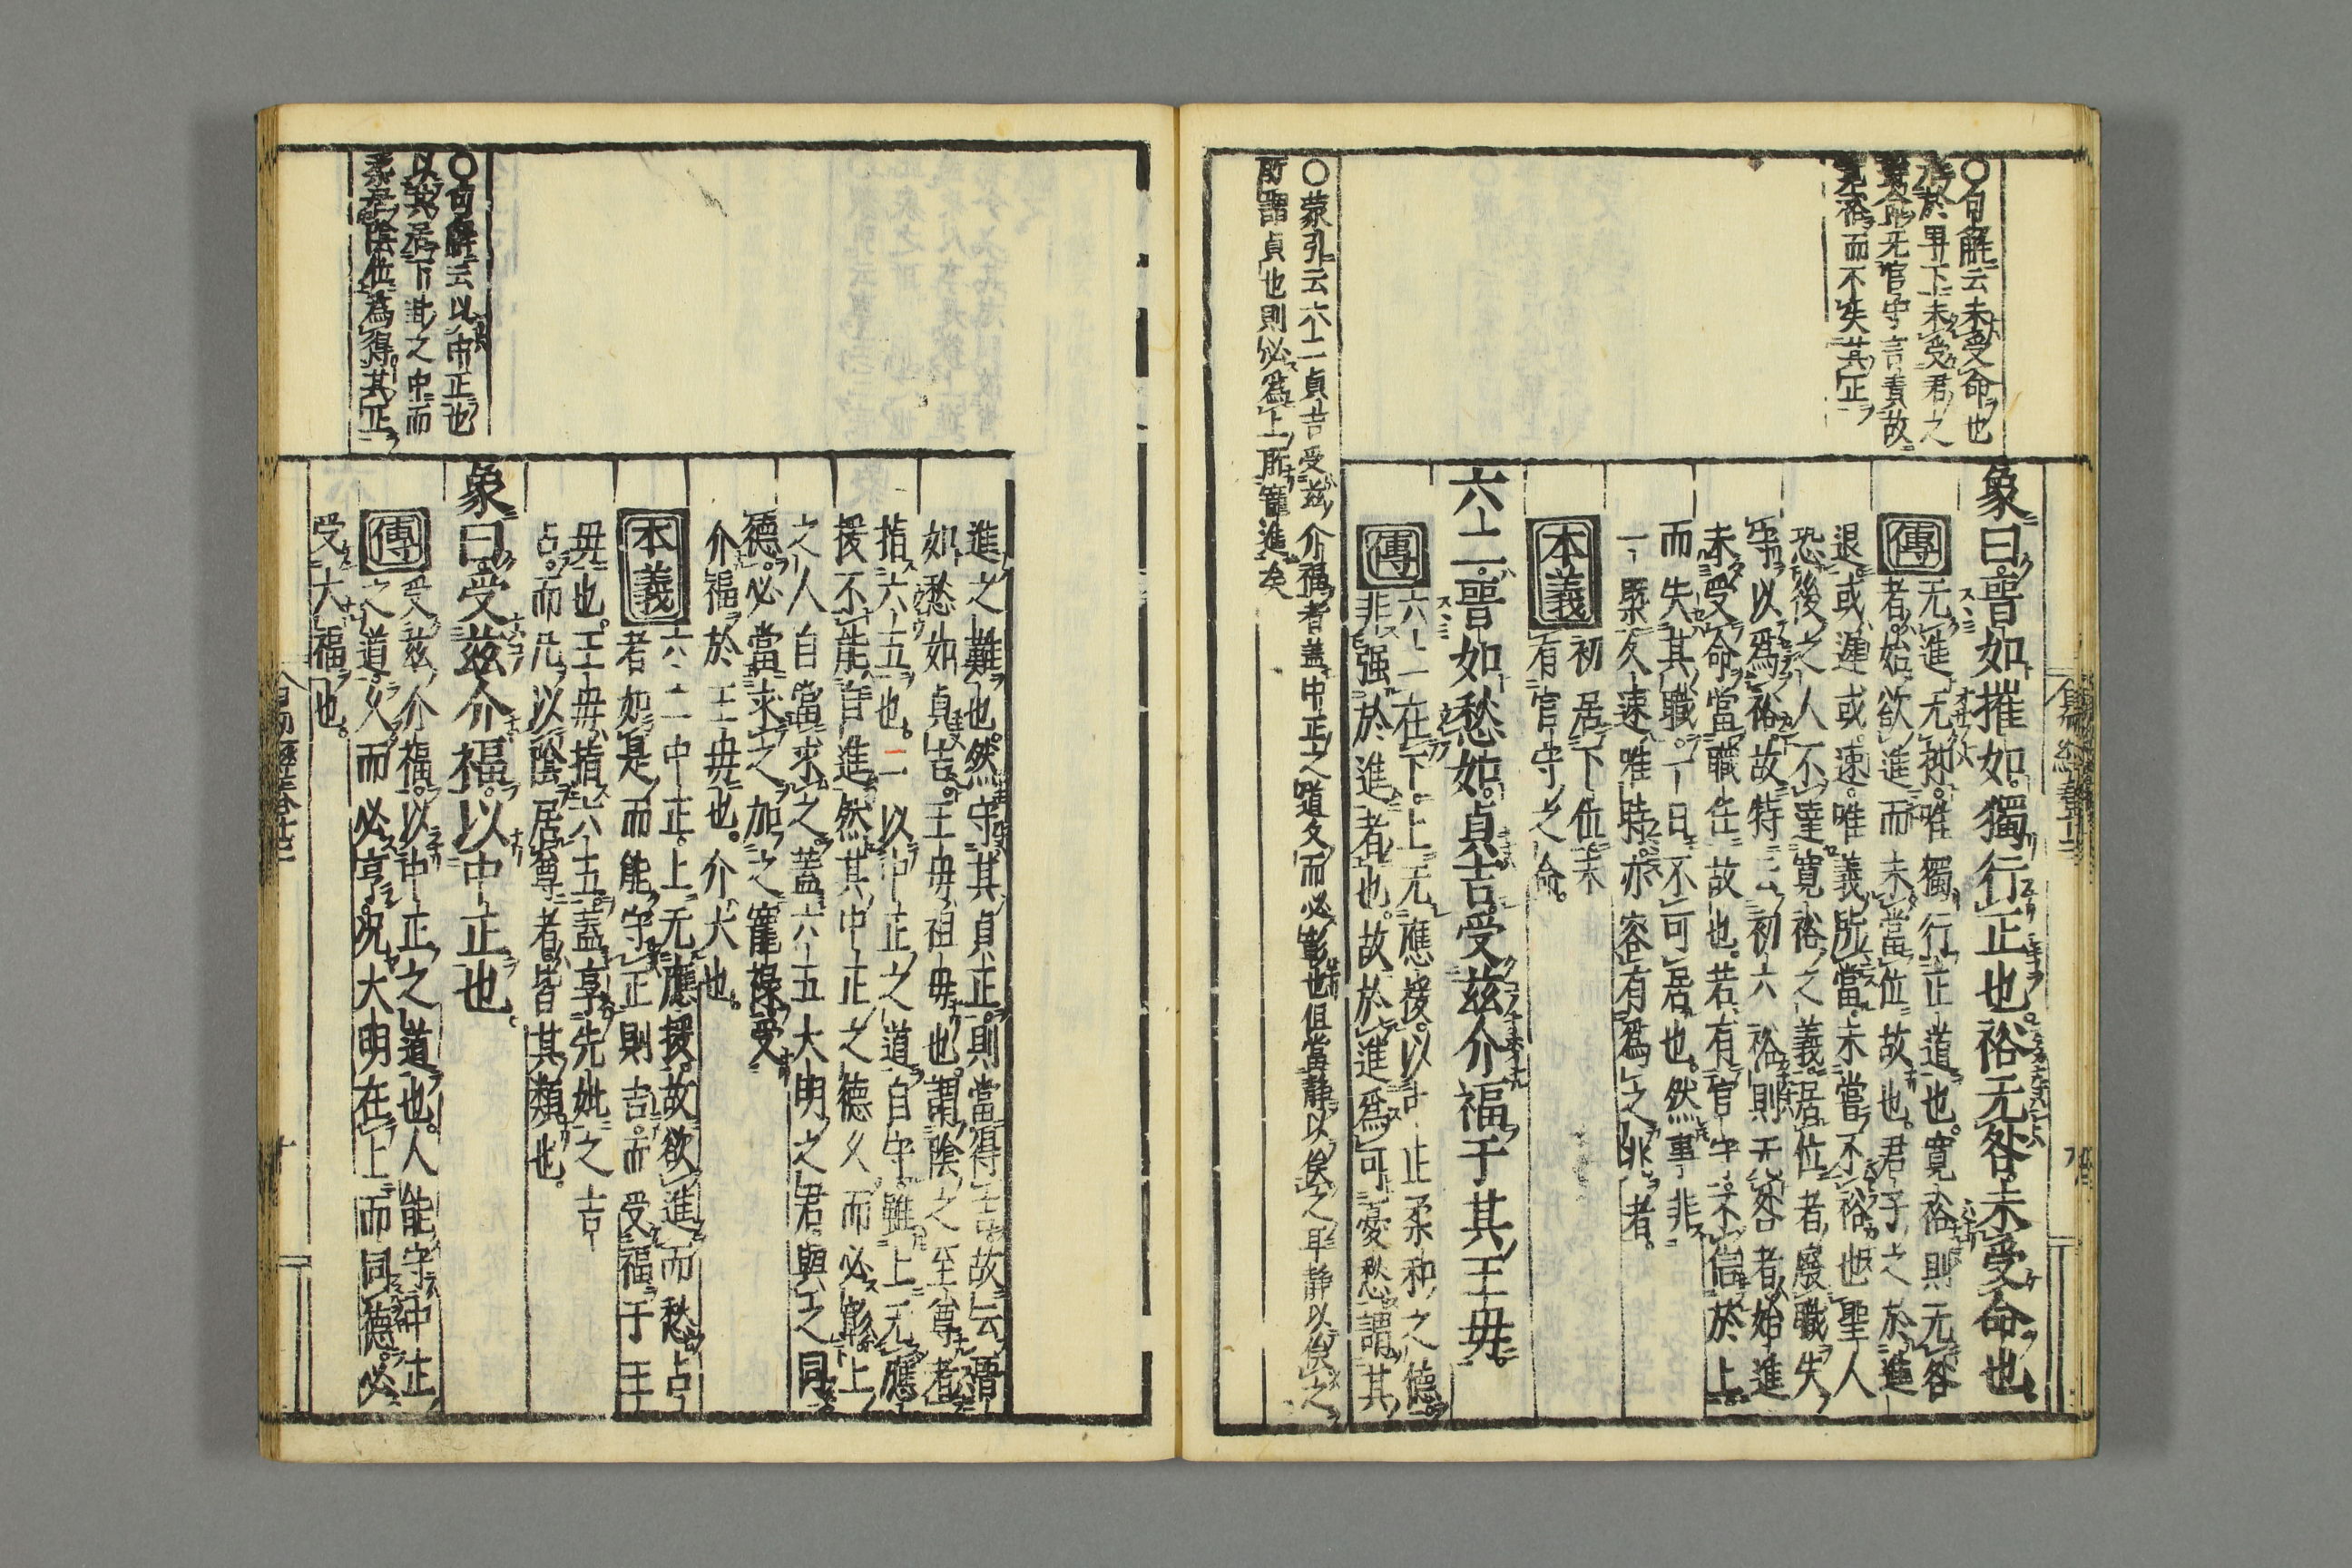 ○句解云未受命也
盖於卑下未受君之
寵命无官守言責故
寛裕而不失其正
象曰晉如摧如獨行正也裕无咎未受命也
傳
无進无抑唯獨行正道也寛裕則无咎
者始欲進而未當位故也君子之於進
退或遲或速唯義所當未嘗不裕也聖人
恐後之人不達寛裕之義居位者廢職失
守以爲裕故特云初六裕則无咎者始進
未受命當職任故也若有官守不信於上
而失其職一日不可居也然事非
一槩久速唯時亦容有爲之兆者
本義
初居下位未
有官守之命
六二晉如愁如貞吉受茲介福于其王毋
傳
六二在下上无應援以中正柔和之德
非强於進者也故於進爲可憂愁謂其
○蒙引云六二貞吉受茲介福者盖中正之道久而必彰也但當静以俟之耳静以俟之
所謂貞也則必爲上所寵進矣
進之難也然守其貞正則當得吉故云晉
如愁如貞吉王毋祖毋也謂陰之至尊者
指六五也二以中正之道自守雖上无應
援不能自進然其中正之德久而必彰上
之人自當求之蓋六五大明之君與之同
德必當求之加之寵祿受
介福於王毋也介大也
本義
六二中正上无應援故欲進而愁占
者如是而能守正則吉而受福于王
毋也王毋指六五蓋享先妣之吉
占而凡以陰居尊者皆其類也
○句解云以中正也
以其居下卦之中而
柔居陰位爲得其正
象曰受茲介福以中正也
傳
受茲介福以中正之道也人能守中正
之道久而必亨況大明在上而同德必
受大福也